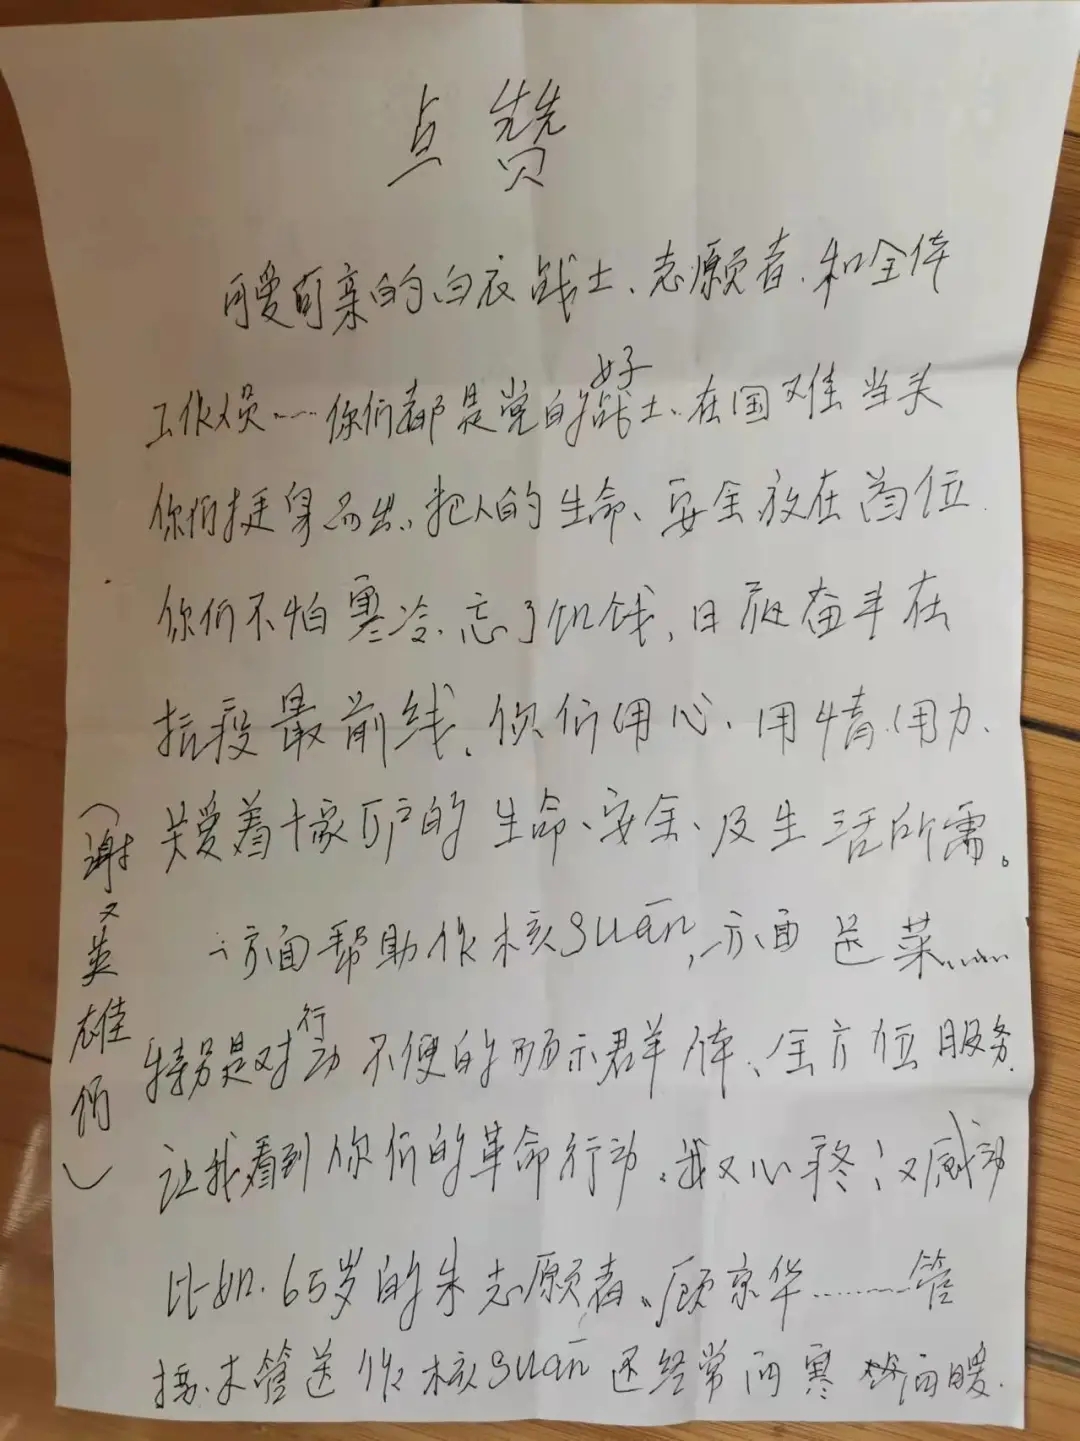 点赞
可爱可亲的白衣战士、志愿者、和全体
工作人员……你们都是党的好战士、在国难当头
你们挺身而出、把人的生命、安全放在首位
你们不怕寒冷、忘了饥饿、日夜奋斗在
抗疫最前线、你们用心、用情、用力、
关爱着千家万户的生命、安全、及生活所需。
一方面帮助作核suān,方面送菜……
特别是对行动不便的 群体、全方位服务
让我看到你们的革命行动、我又心疼;又感动
比如、65岁的朱志愿者、顾京华………管
接、又管送作核suān还经常问寒 问暖、
(谢谢英雄们)